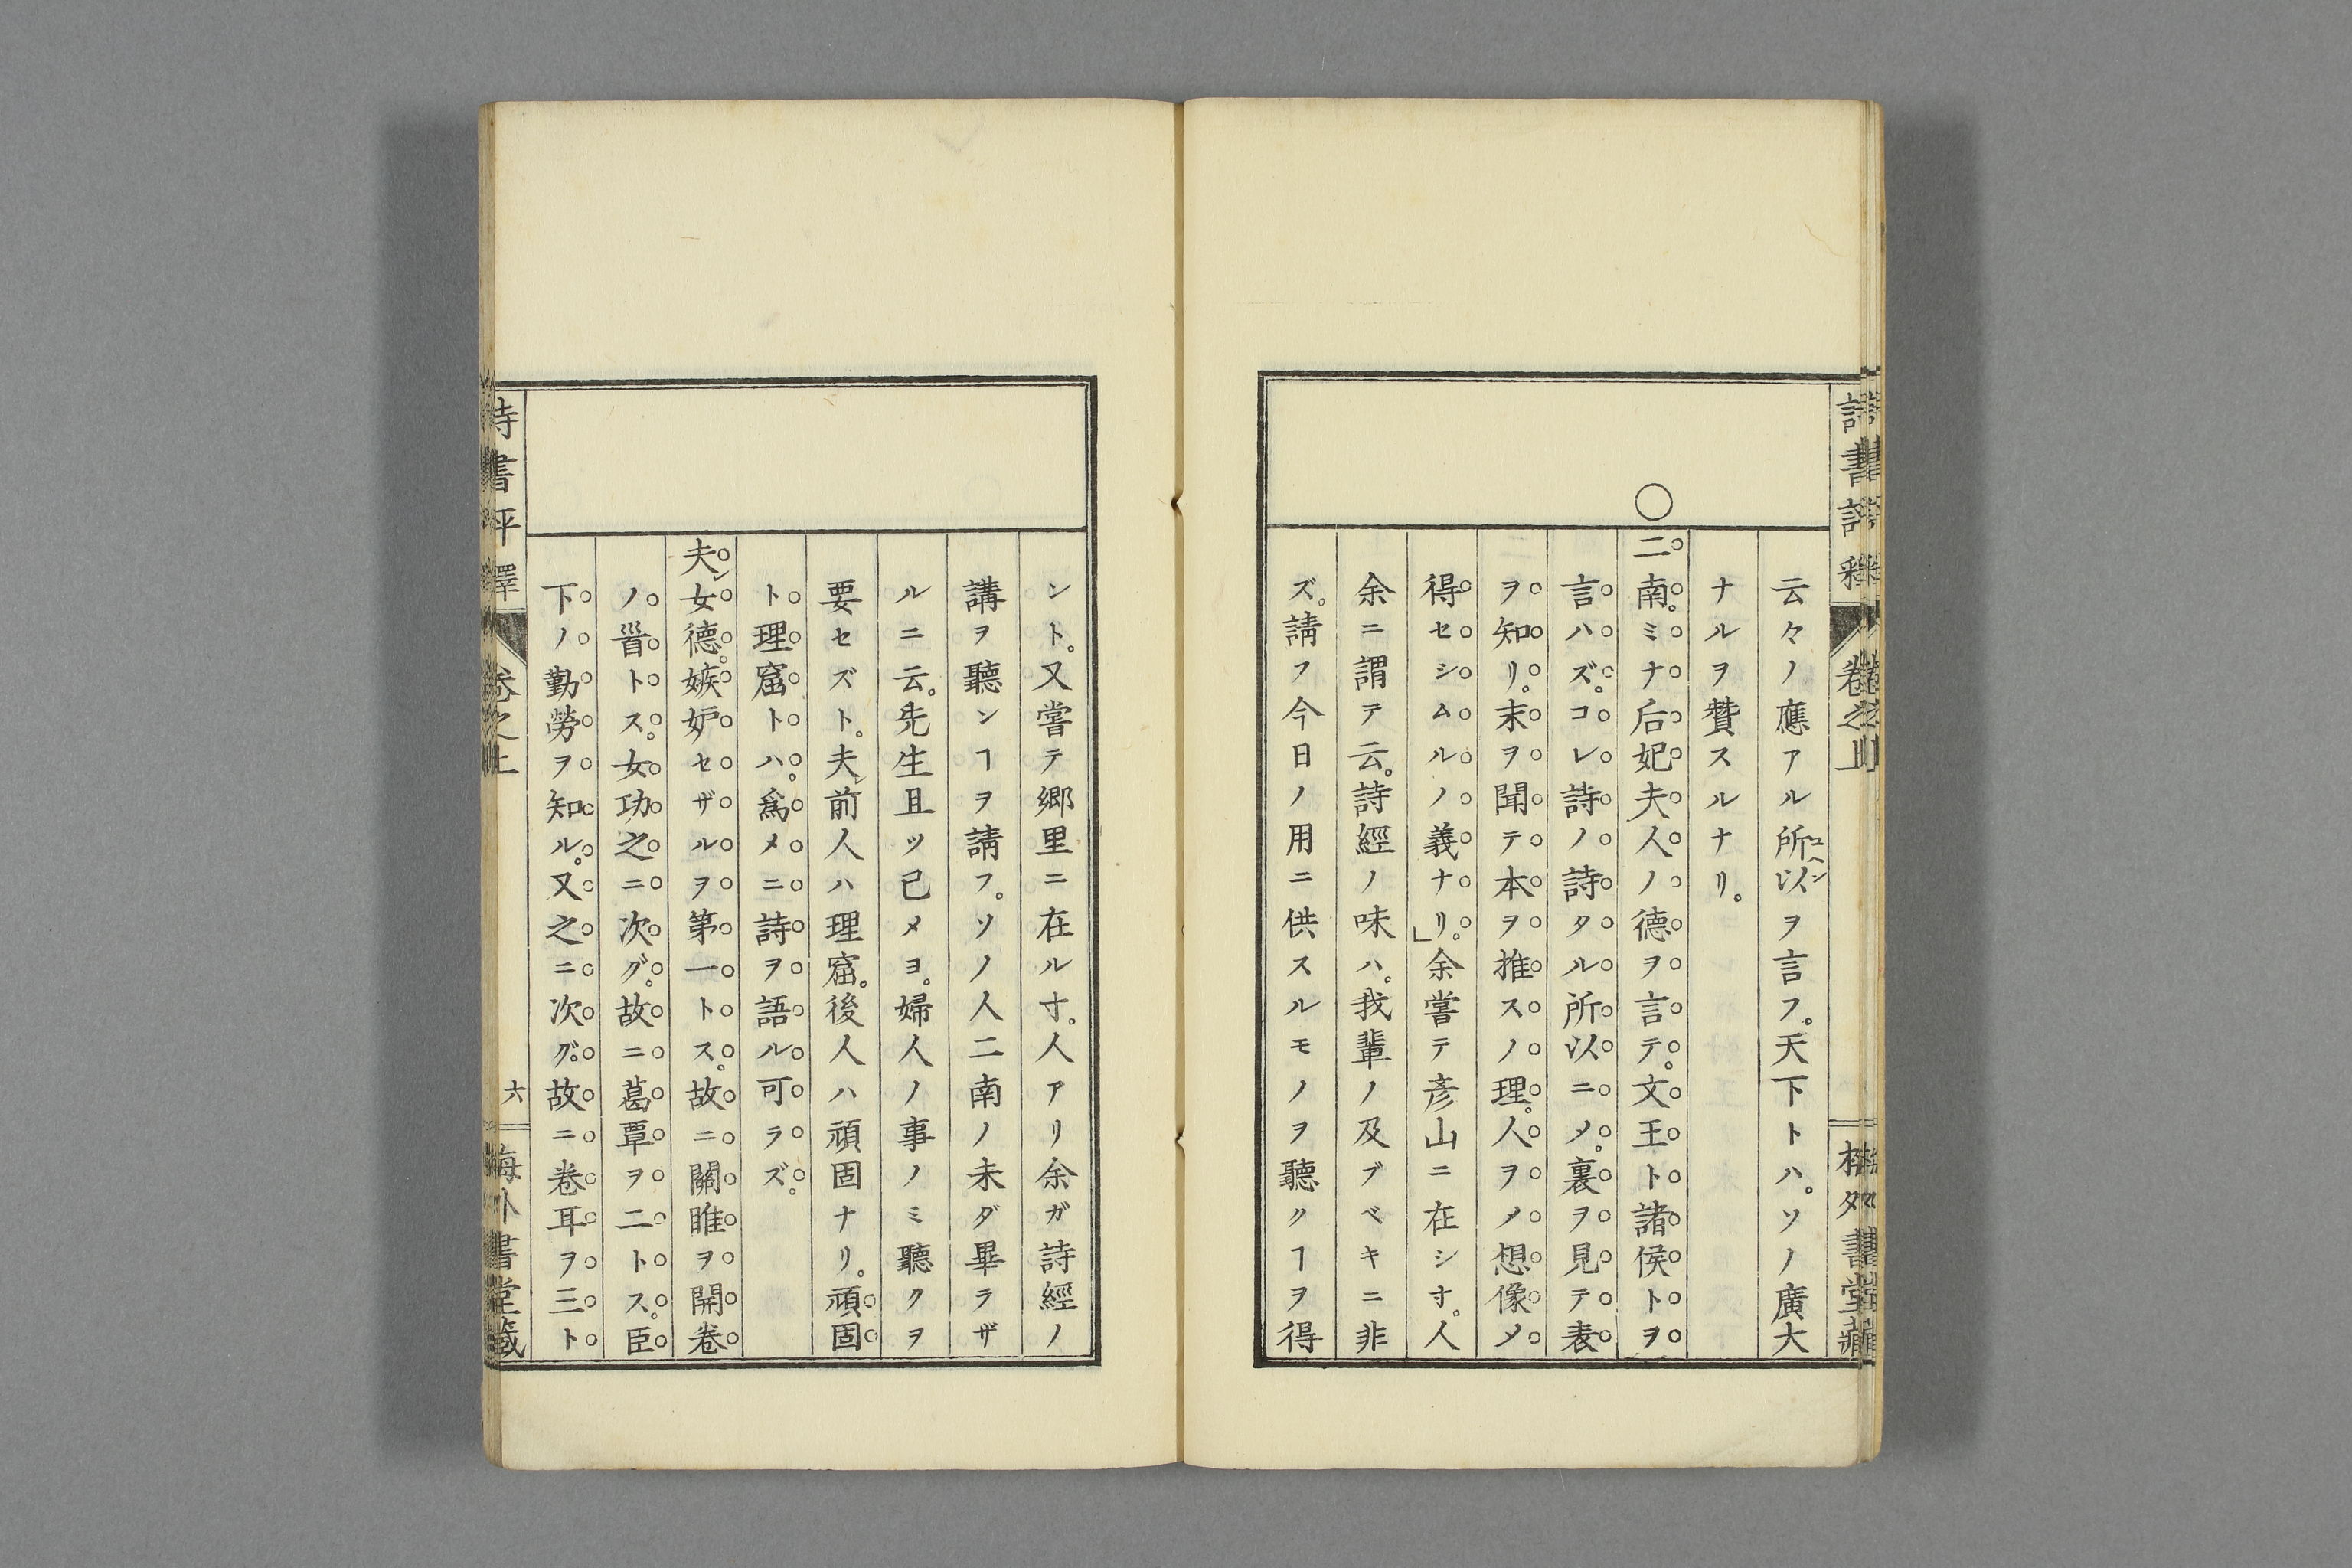 云々ノ應アル所以ヲ言フ。天下トハ。ソノ廣大
ユヘン
ナルヲ贊スルナリ。
○
二南。ミナ后妃夫人ノ德ヲ言テ。文王ト諸侯トヲ
言ハズ。コレ詩ノ詩タル所以ニ〆。裏ヲ見テ表
ヲ知リ。末ヲ聞テ本ヲ推スノ理。人ヲ〆想像〆
得セシムルノ義ナリ。」余嘗テ彦山ニ在シ寸。人
余ニ謂テ云。詩經ノ味ハ。我輩ノ及ブベキニ非
ズ。請フ今日ノ用ニ供スルモノヲ聽クヿヲ得
ント。又嘗テ鄉里ニ在ル寸。人アリ余ガ詩經ノ
講ヲ聽ンヿヲ請フ。ソノ人二南ノ未ダ畢ラザ
ルニ云。先生且ツ已メヨ。婦人ノ事ノミ聽クヲ
要セズト。夫レ前人ハ理窟。後人ハ頑固ナリ。頑固
ト理窟トハ。爲メニ詩ヲ語ル可ラズ。
夫レ女德。嫉妒セザルヲ第一トス。故ニ關雎ヲ開卷
ノ首トス。女功之ニ次グ。故ニ葛覃ヲ二トス。臣
下ノ勤勞ヲ知ル。又之ニ次グ。故ニ卷耳ヲ三ト
詩書評釋
卷之上
六
梅外書堂藏